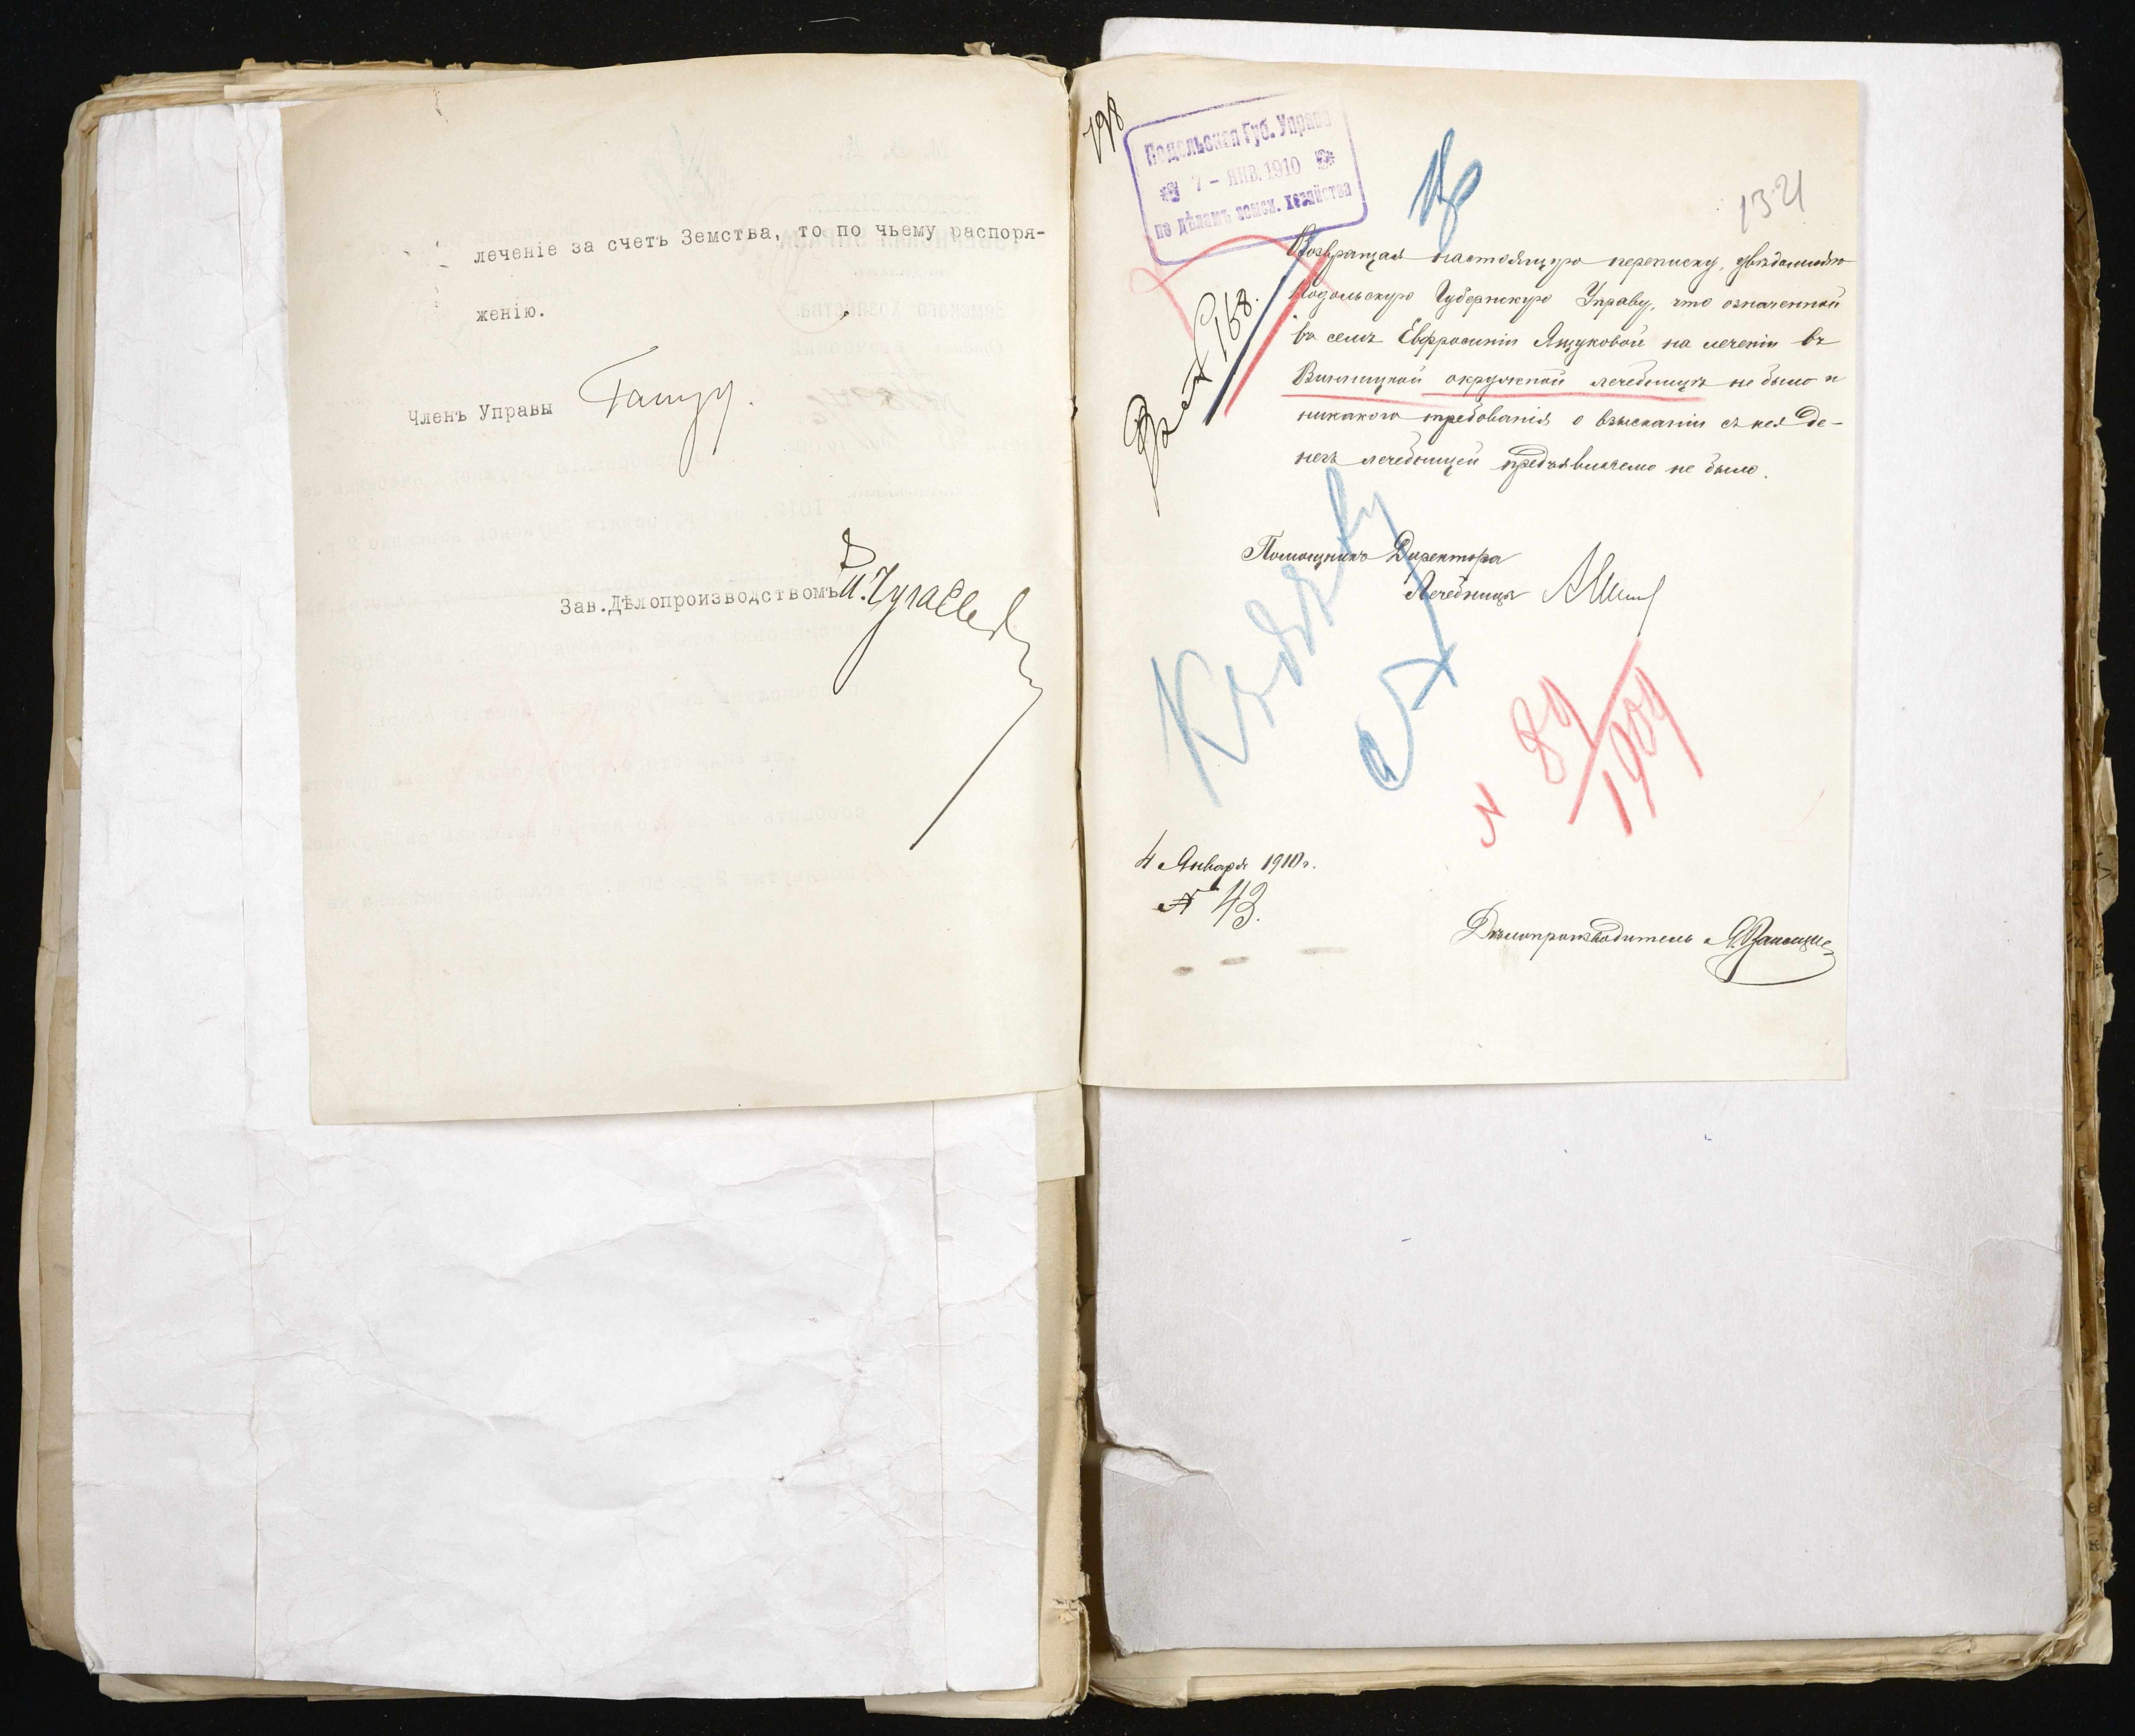 лечение за счетъ Земства, то по чьему распоря-
женію.
Членъ Управы
Зав.Дѣлопроизводствомъ
198
Подольская Губ. Управа
7 - ЯНВ. 1910
по дѣламъ земск. хозяйства
Возвращая настоящую переписку, увѣдомляю
Подольскую Губернскую Управу, что означенной
въ семъ Евфросиніи Ящуковой на леченіи въ
Винницкой окружной лечебницѣ не было и
никакого требованія о взысканіи съ нея де-
негъ лечебницей предъявляемо не было.
168.
Помощникъ Директора
Лечебницы
Къ дѣлу
N 89/1909
4 Января 1910 г.
№ 43.
Дѣлопроизводитель